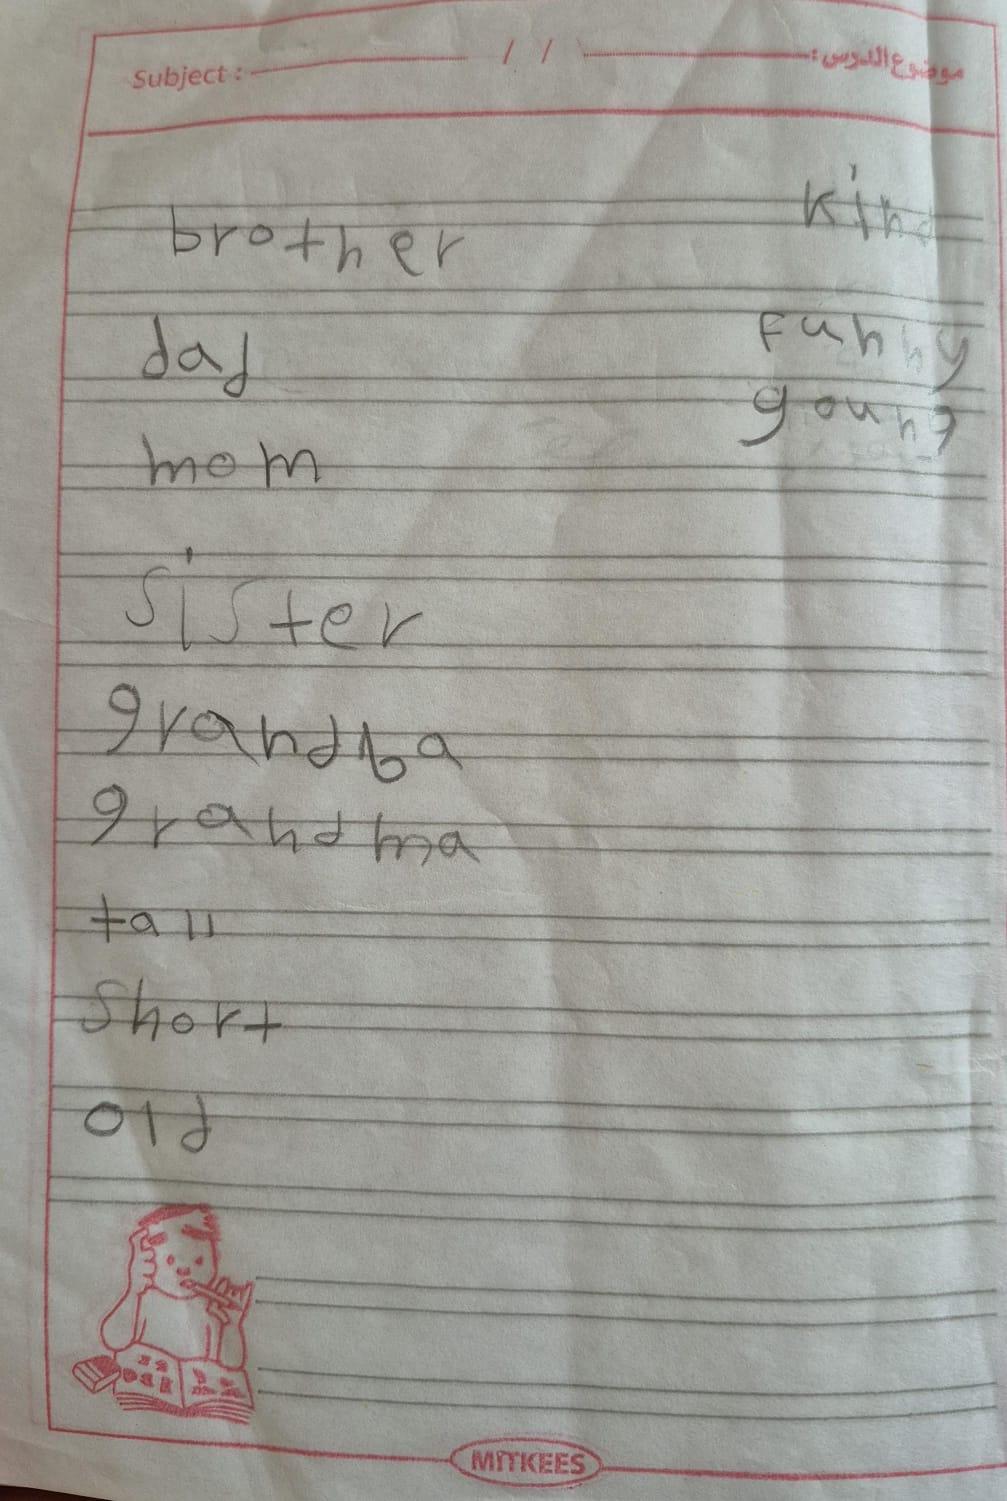 Subject : / / موضوع الدرس :
brother kind
dad funny
goung
mom
sister
grandba
grandma
tall
short
old
MITKEES